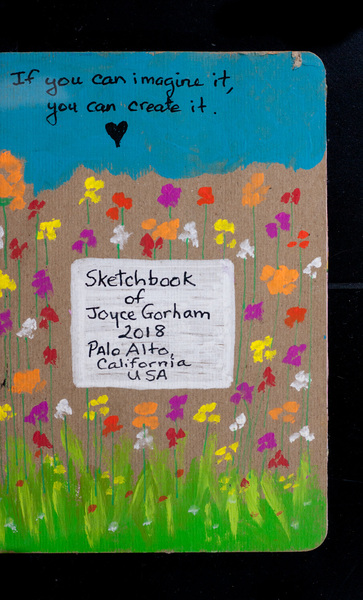 If you can imagine it,
you can create it.
Sketchbook
of
Joyce Gorham
2018
Palo Alto,
California
USA